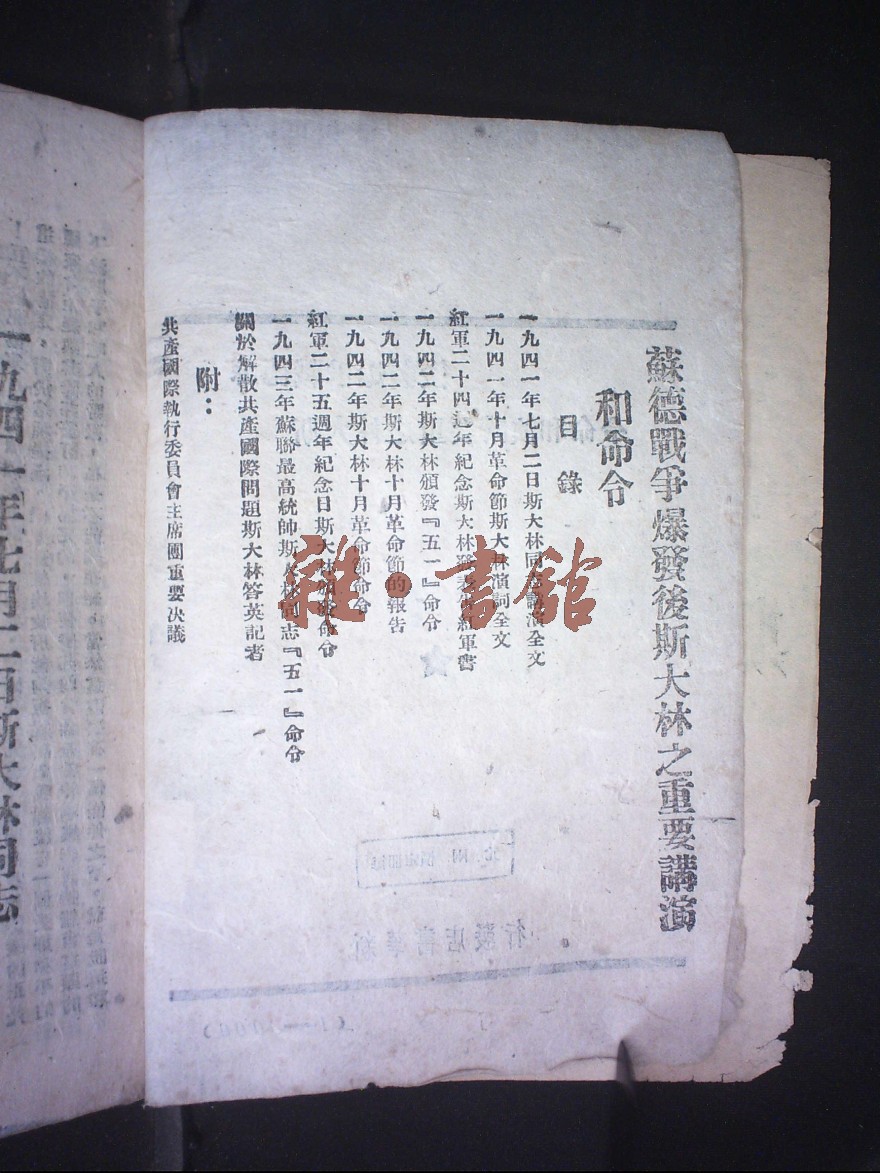 蘇德戰爭爆發後斯大林之重要講演
和命令
目錄
一九四一年七月二日斯大林同志講演全文
一九四一年十月革命節斯大林演詞全文
紅軍二十四週年紀念斯大林發表告紅軍書
一九四二年斯大林頒發『五一』命令
一九四二年斯大林十月革命節的報告
一九四二年斯大林十月革命節命令
紅軍二十五週年紀念日斯大林頒發命令
一九四三年蘇聯最高統帥斯大林同志『五一』命令
關於解散共產國際問題斯大林答英記者
附：
共產國際執行委員會主席團重要决議
一九四一年七月二日斯大林同志
雜·書館
新華書店發行